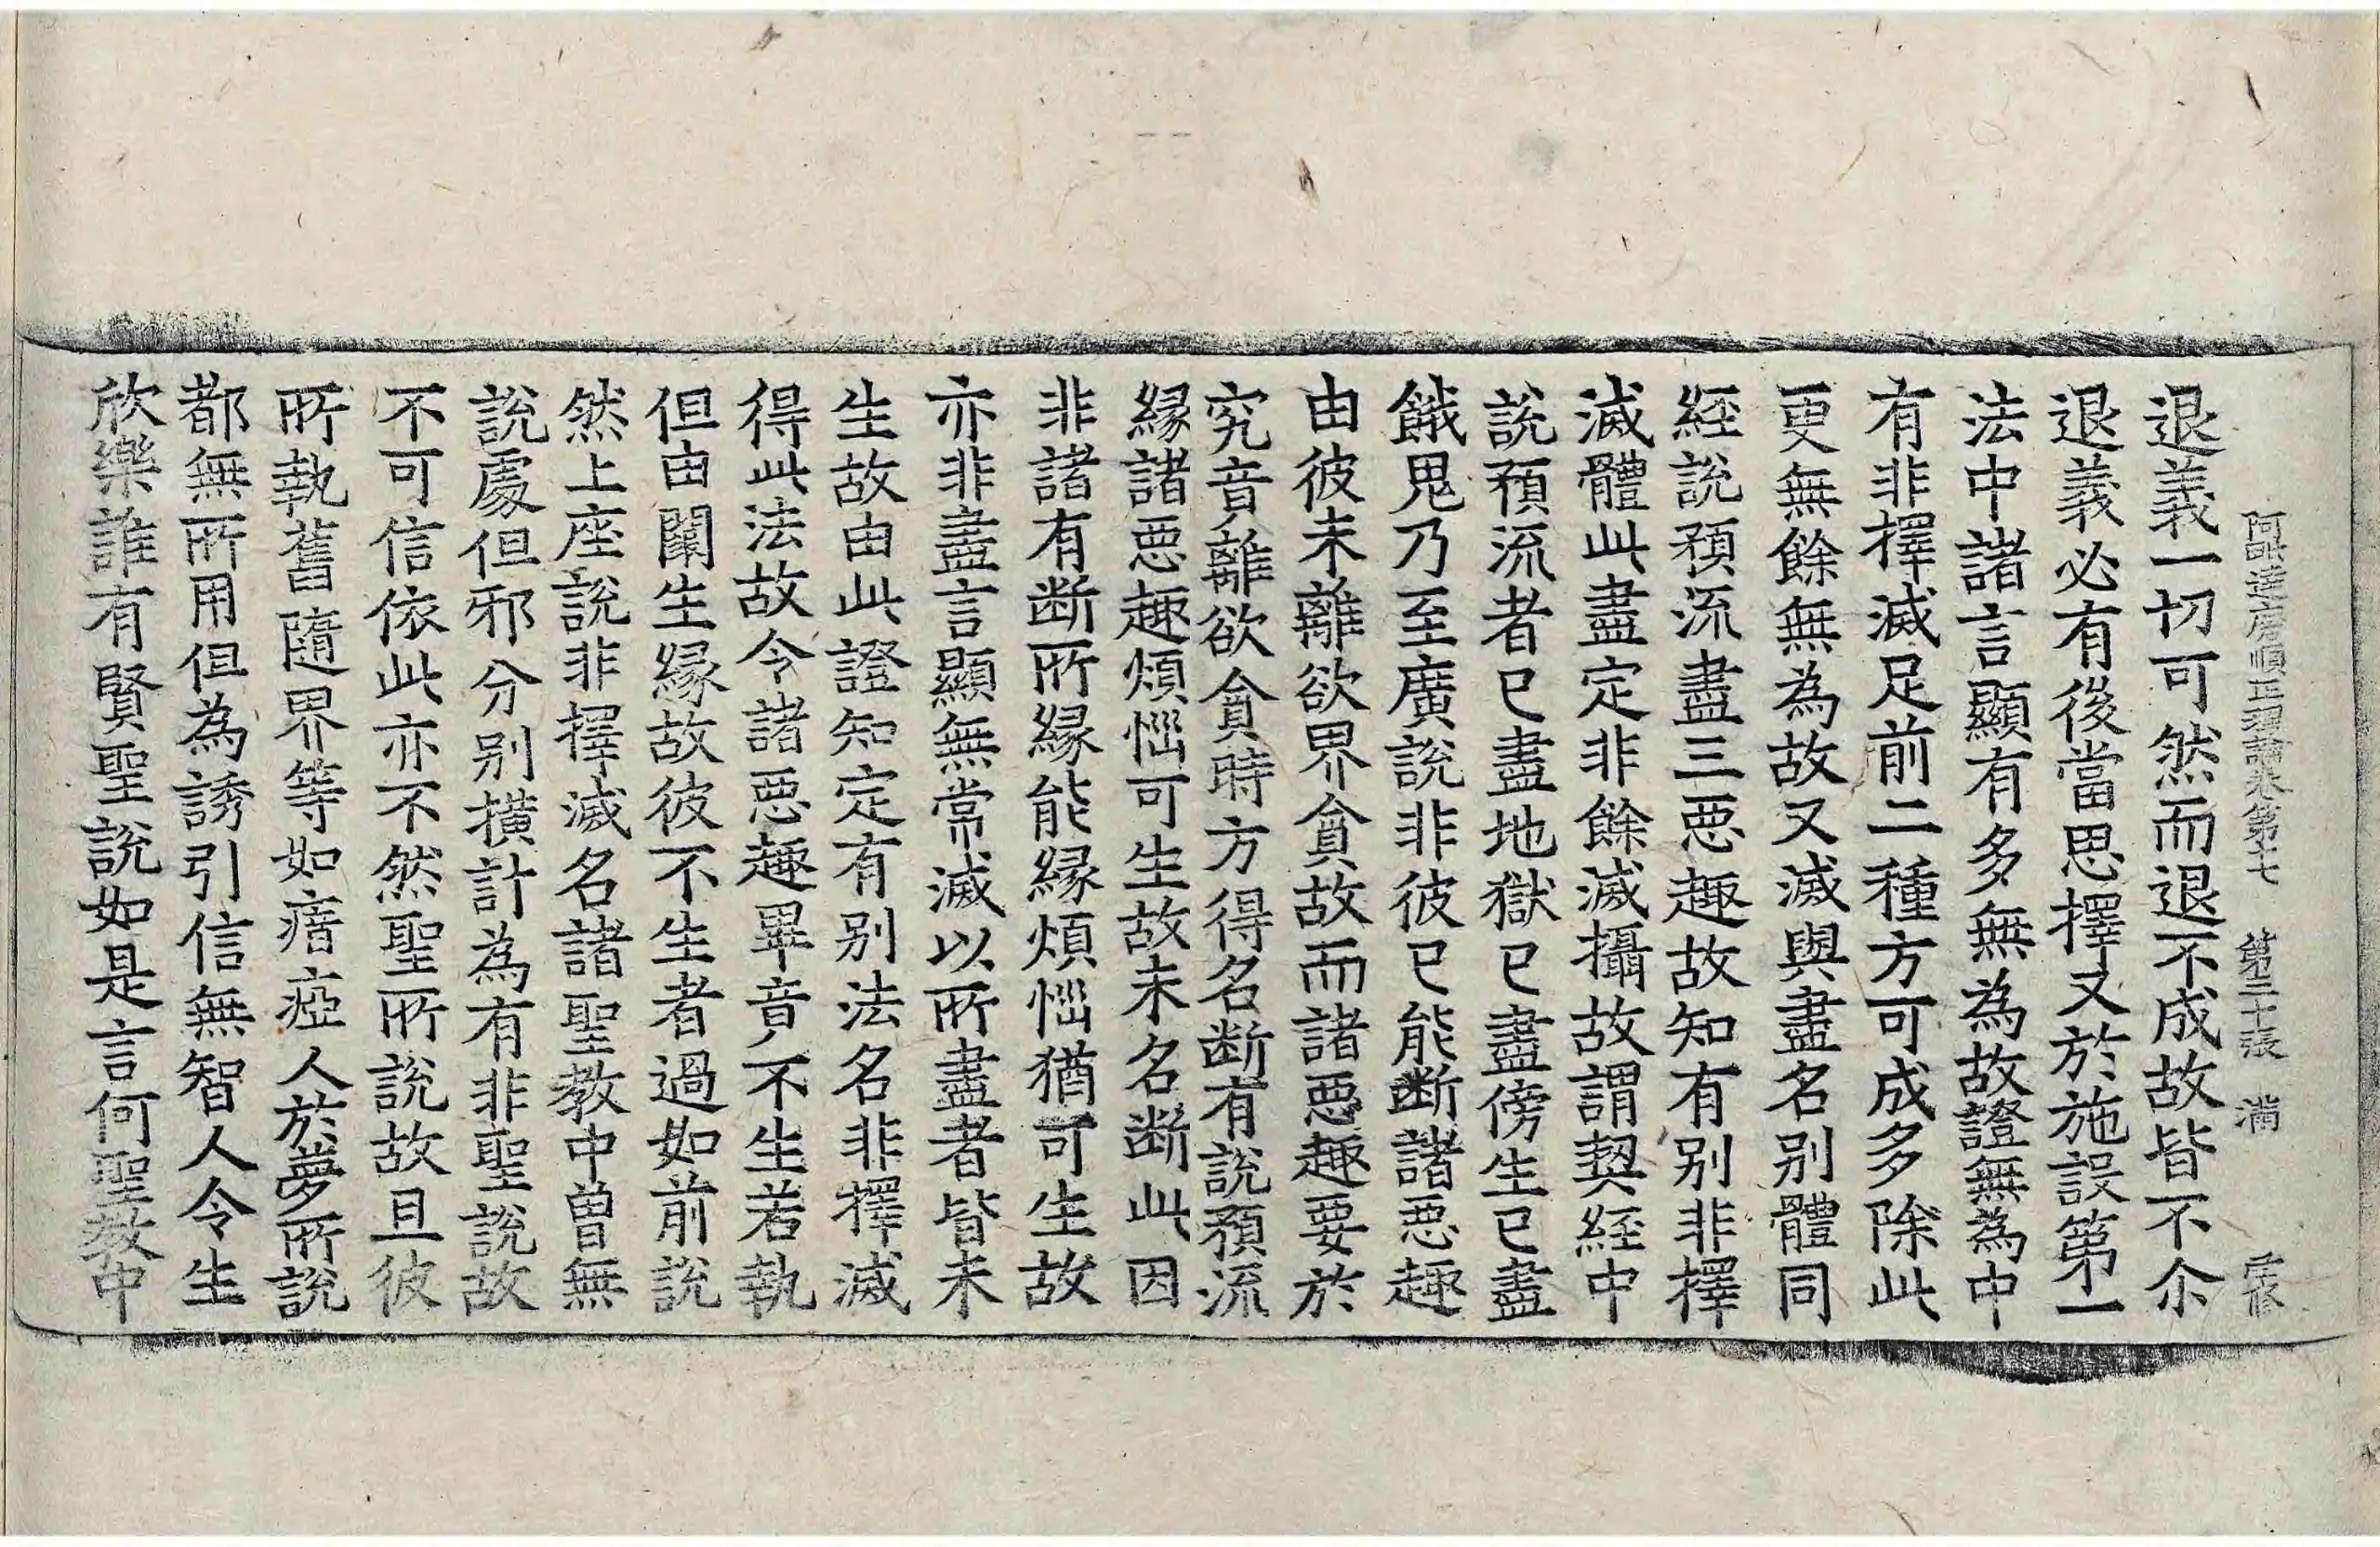 阿毗達磨順正理論卷第十七 第二十張 滿
退義一切可然而退不成故皆不尒
退義必有後當思擇又於施設第一
法中諸言顯有多無為故證無為中
有非擇滅足前二種方可成多除此
更無餘無為故又滅與盡名別體同
經說預流盡三惡趣故知有別非擇
滅體此盡定非餘滅攝故謂契経中
說預流者已盡地獄已盡傍生已盡
餓鬼乃至廣說非彼已能断諸惡趣
由彼未離欲界貪故而諸惡趣要於
究竟離欲貪時方得名断有說預流
縁諸惡趣煩惱可生故未名断此因
非諸有断所縁能縁煩惱猶可生故
亦非盡言顯無常滅以所盡者皆未
生故由此證知定有別法名非擇滅
得此法故令諸惡趣畢竟不生若執
但由闕生縁故彼不生者過如前說
然上座說非擇滅名諸聖教中曾無
說處但邪分別撗計為有非聖說故
不可信依此亦不然聖所說故且彼
所執舊隨界等如瘖瘂人於夢所說
都無所用但為誘引信無智人令生
欣樂誰有賢聖說如是言何聖教中